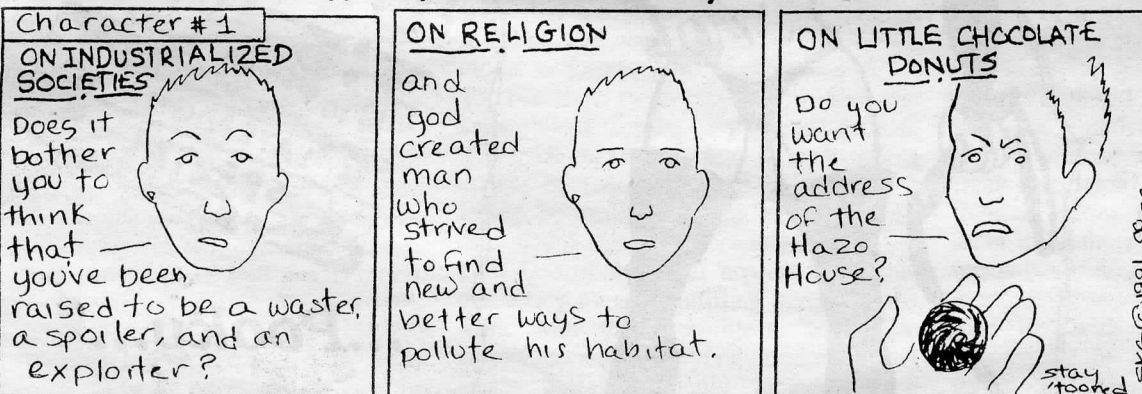 Character #1
ON INDUSTRIALIZED
SOCIETIES
Does it
bother
you to
think
that
you've been
raised to be a waster,
a spoiler, and an
exploiter?
ON RELIGION
and
god
created
man
who
strived
to find
new and
better ways to
pollute his habitat.
ON LITTLE CHOCOLATE
DONUTS
Do you
want
the
address
of the
Hazo
House?
stay
'tooned